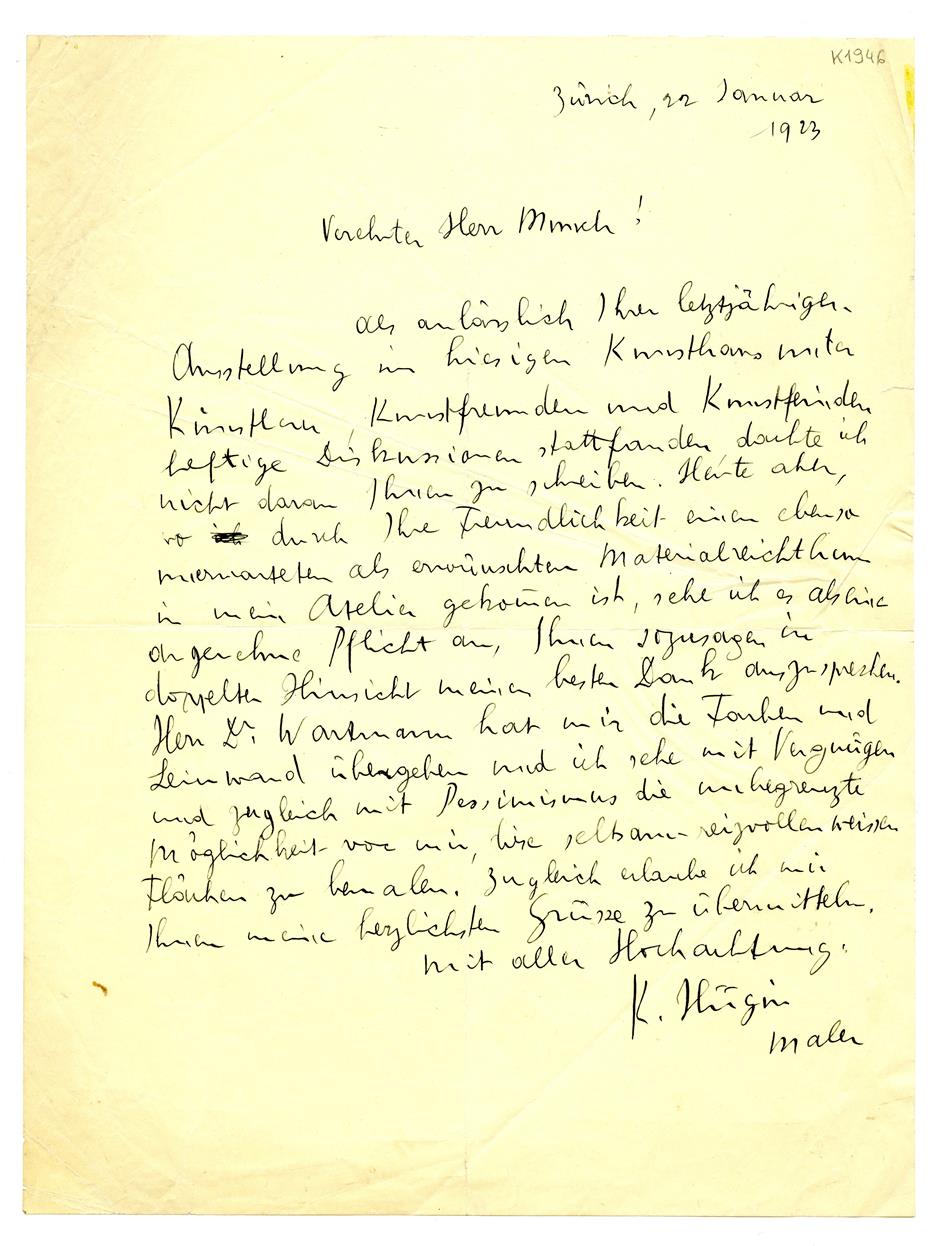 K1946
Zürich, 22 Januar
1923
Verehrter Herr Munch!
als anlässlich Ihrer letztjährigen
Ausstellung im hiesigen Kunsthaus unter
Künstlern, Kunstfreunden und Kunstfeinden
heftige Diskussionen stattfanden dachte ich
nicht daran Ihnen zu schreiben. Heute aber,
wo durch Ihre Freundlichkeit einen ebenso
unerwarteten als erwünschten Materialreichthum
in mein Atelier gekommen ist, sehe ich es als eine
angenehme Pflicht an, Ihnen sozusagen in
doppelten Hinsicht meinen besten Dank auszusprechen.
Herr Dr. Wartmann hat mir die Farben und
Leinwand übergeben und ich sehe mit Vergnügen
und zugleich mit Pessimismus die unbegrenzte
Möglichkeit vor mir, diese seltsam-reizvollen weissen
Flächen zu bemalen. Zugleich erlaube ich mir
Ihnen meine herzlichsten Grüsse zu übermitteln.
Mit aller Hochachtung.
K. Hügin
Maler